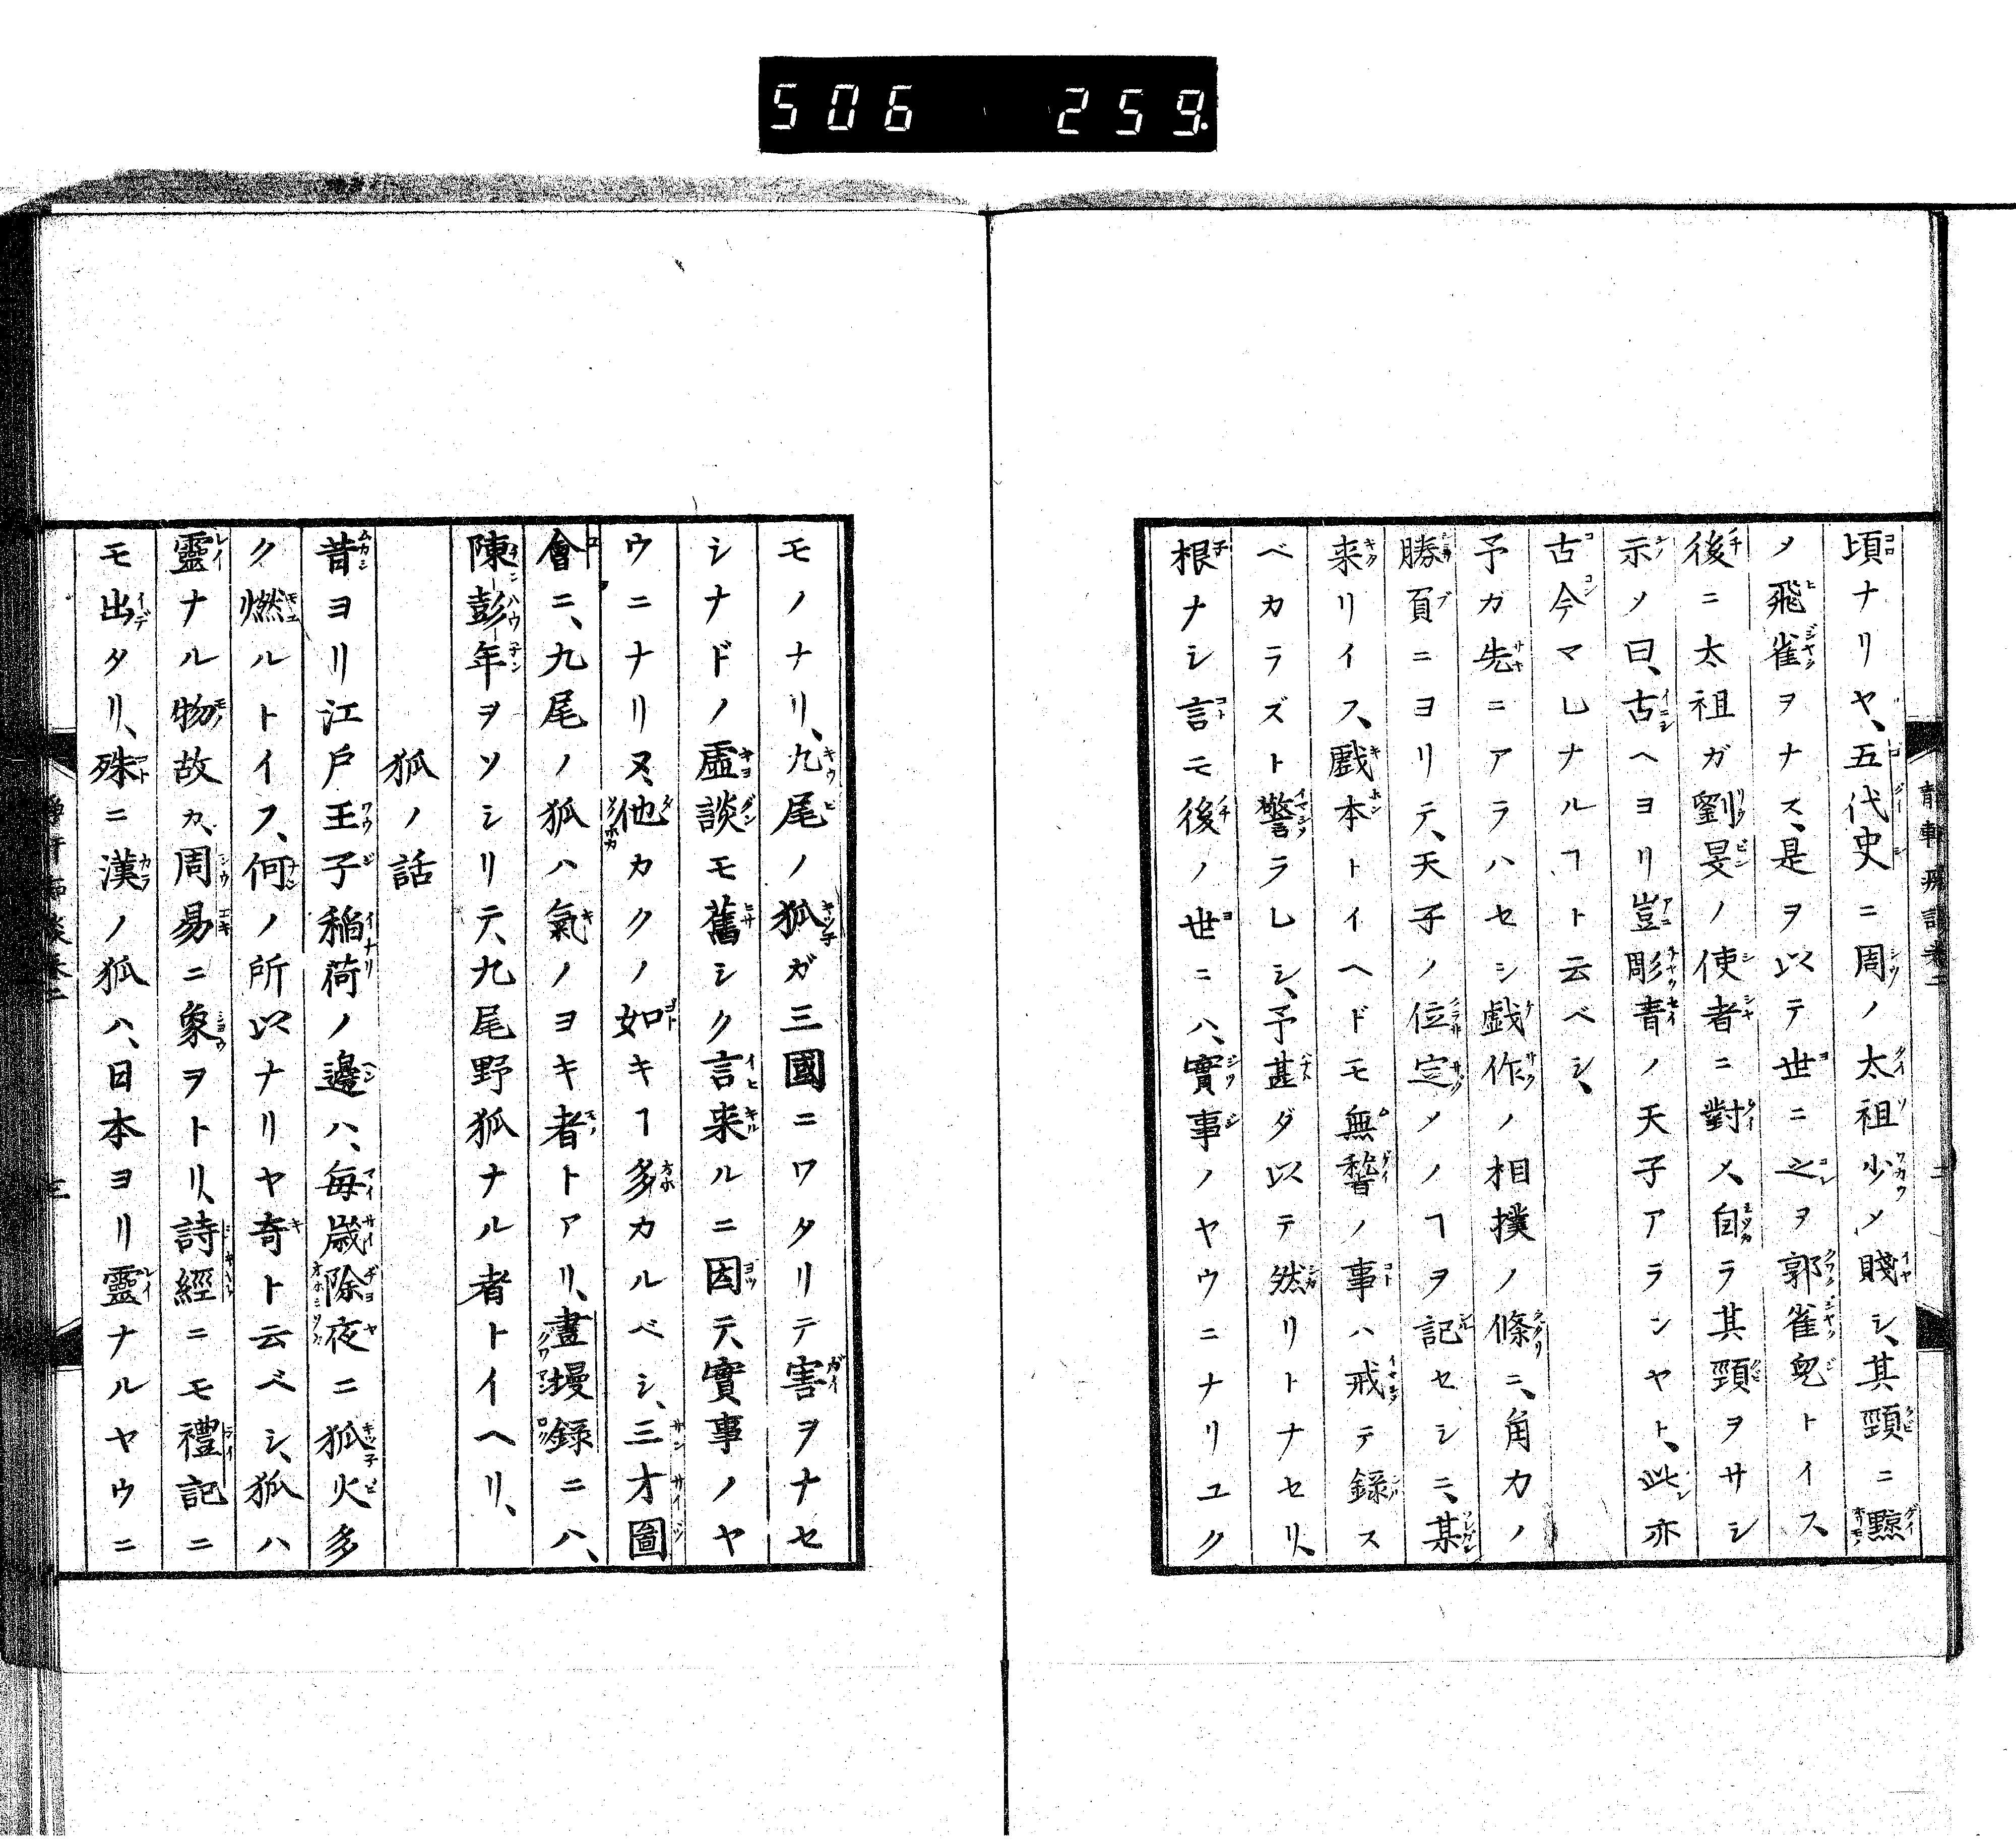 506 259
頃ナリヤ、五代史ニ周ノ太祖少メ賤シ、其頸ニ黥
メ飛雀ヲナス、是ヲ以テ世ニ之ヲ郭雀兒トイス、
後ニ太祖ガ劉旻ノ使者ニ對乄、自ラ其頸ヲサシ
示ノ曰、古ヘヨリ豈彫青ノ天子アラシヤト、此亦
古今マレナルヿト云ベシ、
予ガ先ニアラハセシ戯作ノ相撲ノ條ニ、角力ノ
勝負ニヨリテ、天子ノ位定メノヿヲ記セシニ、某
来リイフ、戲本トイヘドモ無稽ノ事ハ戒テ録ス
ベカラズト警ラレシ、予甚ダ以テ然リトナセリ、
根ナシ言モ後ノ世ニハ、實事ノヤウニナリユク
モノナリ、九尾ノ狐ガ三國ニワタリテ害ヲナセ
シナドノ虚談モ舊シク言来ルニ因テ、實事ノヤ
ウニナリヌ、他カクノ如キヿ多カルベシ、三才圖
會ニ、九尾ノ狐ハ氣ノヨキ者トアリ、畫墁録ニハ、
陳彭年ヲソシリテ、九尾野狐ナル者トイヘリ、
狐ノ話
昔ヨリ江戸王子稲荷ノ邊ハ、毎歳除夜ニ狐火多
ク燃ルトイフ、何ノ所以ナリヤ奇ト云ベシ、狐ハ
靈ナル物故カ、周易ニ象ヲトリ、詩經ニモ禮記ニ
モ出タリ、殊ニ漢ノ狐ハ、日本ヨリ靈ナルヤウニ